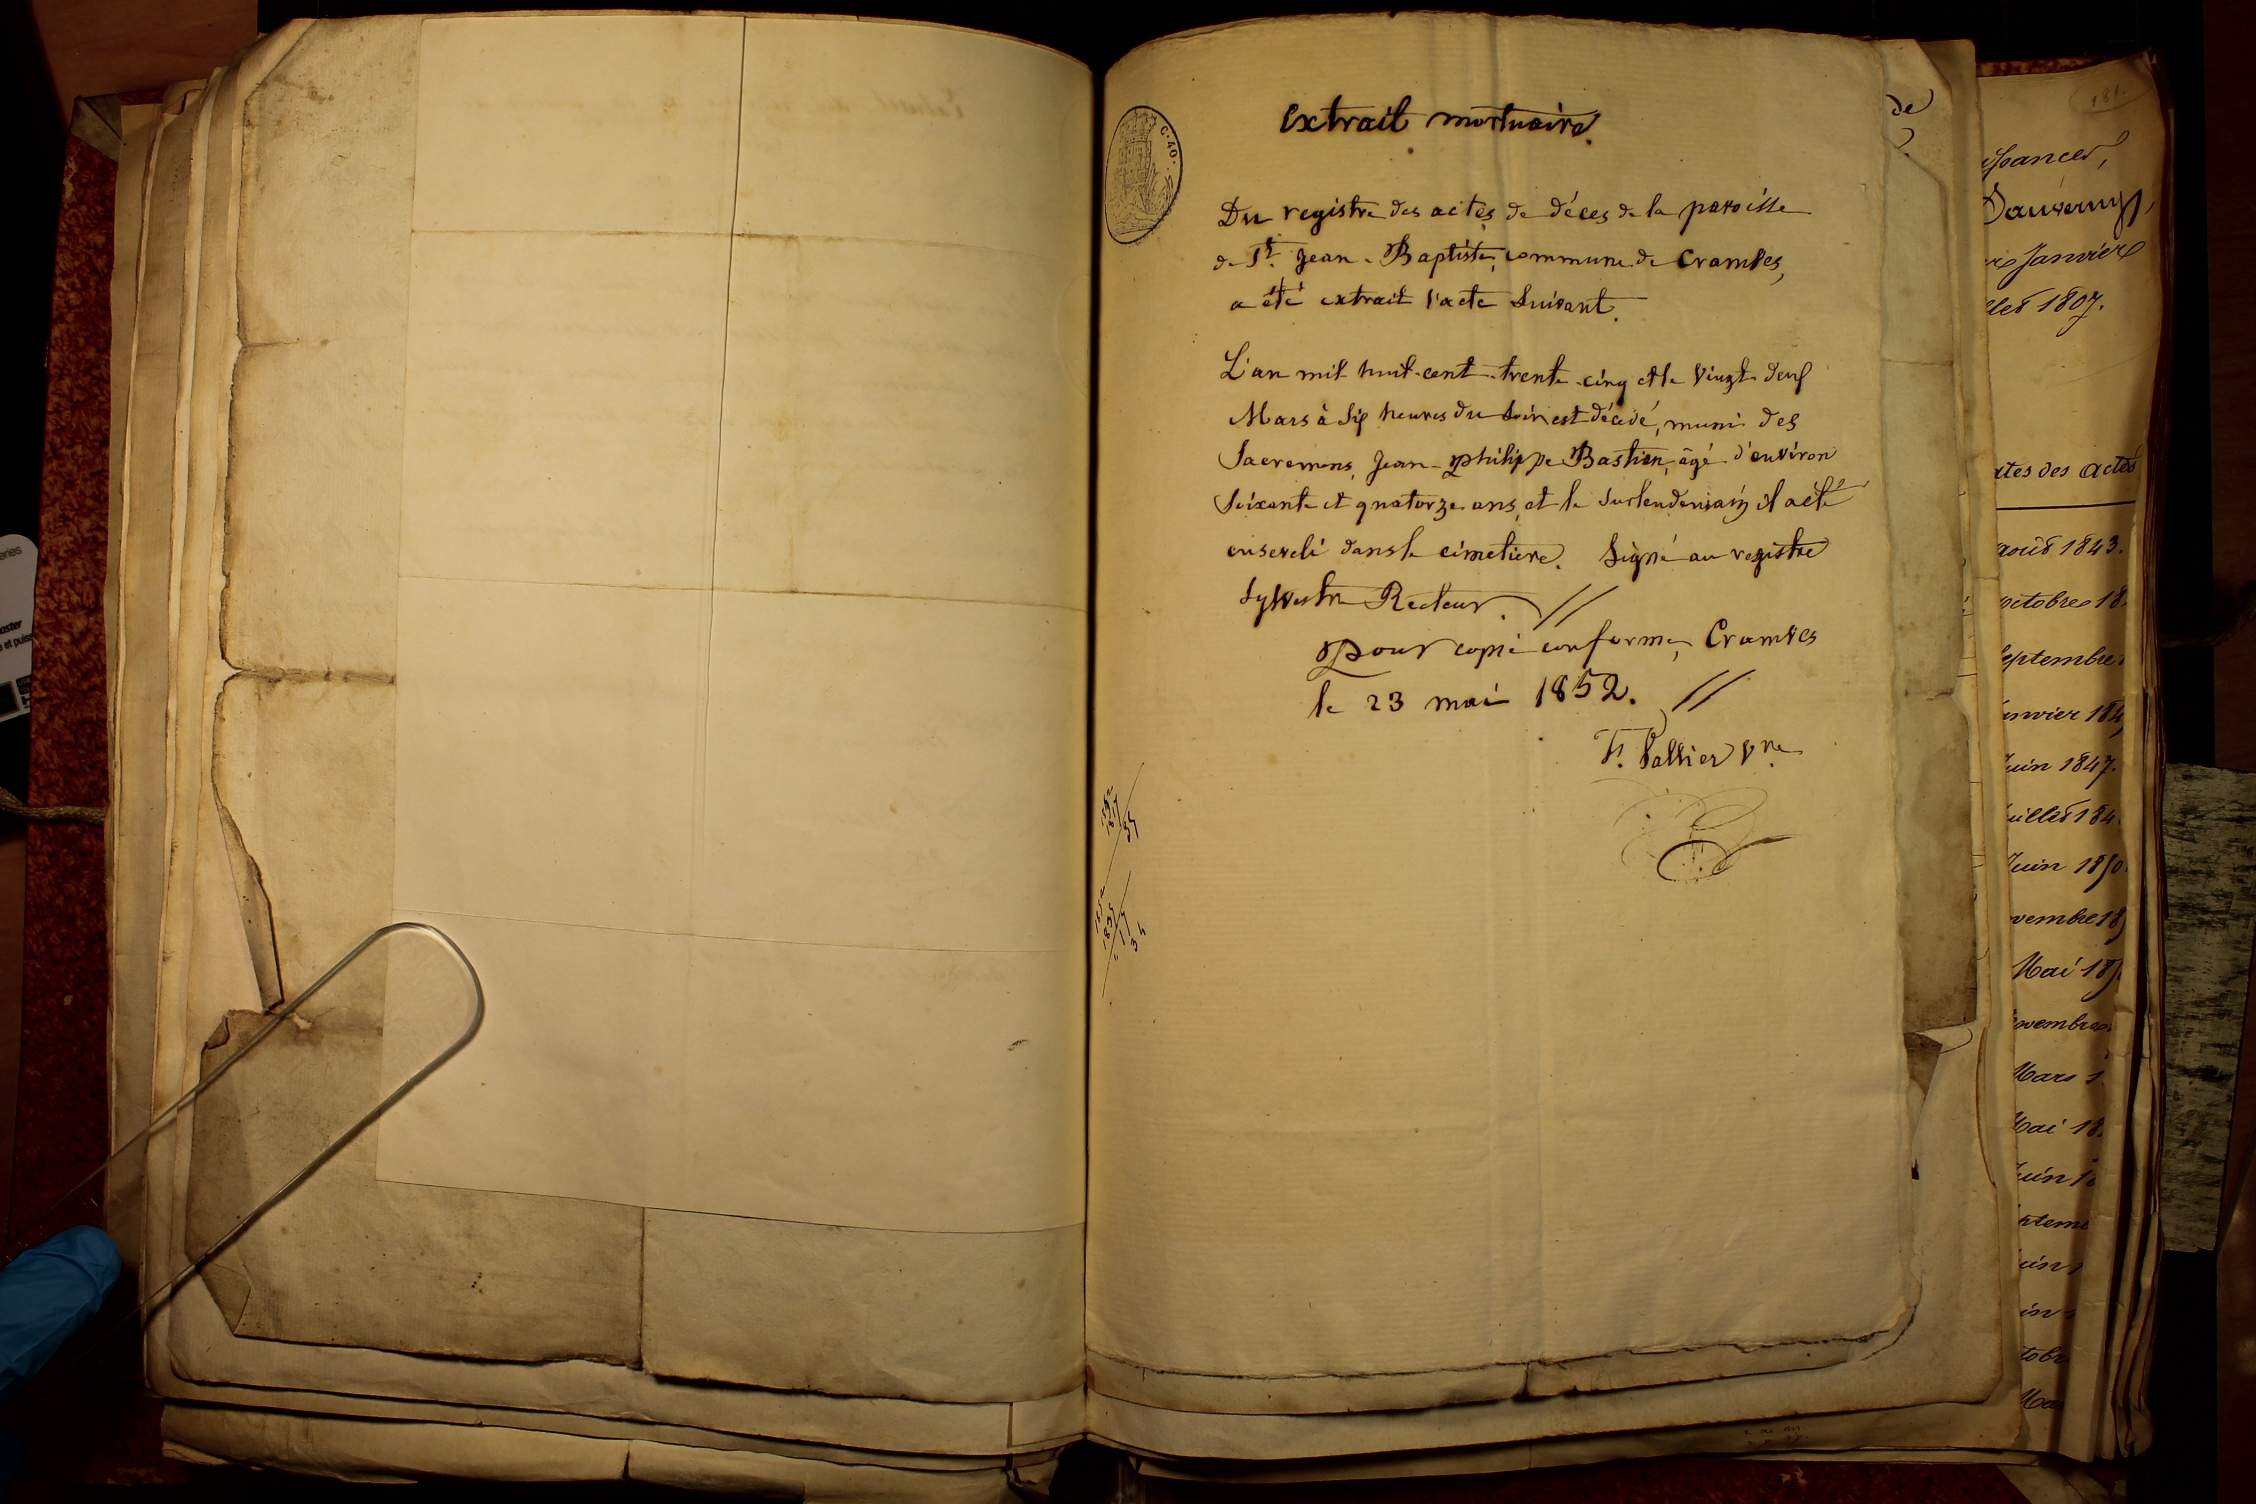 extrait mortuaire.
C. 40.
Du registre des actes de décès de la paroisse
de St. Jean-Baptiste, commune de Cramves,
a été extrait l'acte suivant.
L'an mil huit-cent-trente-cinq et le vingt deux
Mars à six heures du soir est décédé, muni des
Sacremens, Jean-Philippe Bastian, âgé d'environ
soixante et quatorze ans, et le surlendemain il a été
enseveli dans le cimetière. Signé au registre
Sylvestre Recteur. //
pour copie conforme, Cramves
le 23 mai 1852. //
1852
1835
17
de
181.
Dauverny,
Janvier
1807.
des actes
août 1843.
octobre 18
septembre
Janvier 184
Juin 1847.
Juillet 184
Juin 1850
vembre 18
Mai 18
novembre
Mars 1
Mai 18